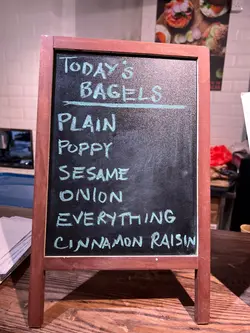 TODAY'S
BAGELS
PLAIN
POPPY
SESAME
ONION
EVERYTHING
CINNAMON RAISIN